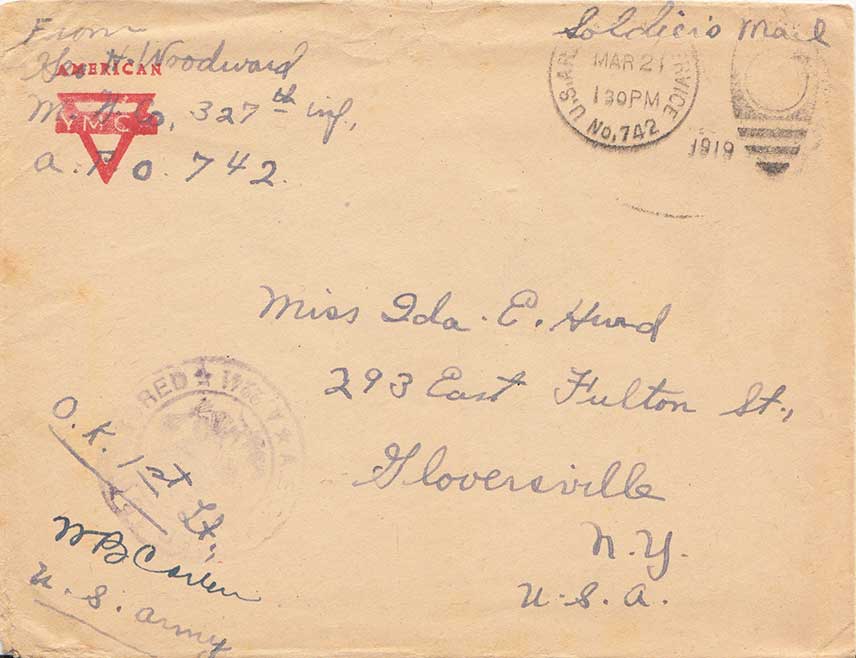 From
Geo. H. Woodward
AMERICAN
YMCA
M. G. Co, 327th inf.,
A. P. O. 742.
Soldier's Mail
U.S. AR RVICE
MAR 21
1 30 PM
No. 742
1919
Miss Ida. E. Hurd
293 East Fulton St.,
Gloversville
N. Y.
U. S. A.
RED ★
O. K. 1st Lt.,
W B
U. S. Army